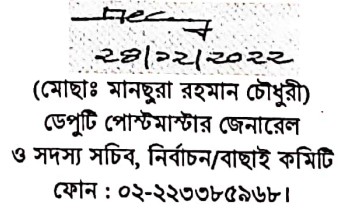 ২৪/০২/২০২২
(মোছাঃ মানছুরা রহমান চৌধুরী)
ডেপুটি পোস্টমাস্টার জেনারেল
ও সদস্য সচিব, নির্বাচন/বাছাই কমিটি
ফোন : ০২-২২৩৩৮৫৯৬৮।